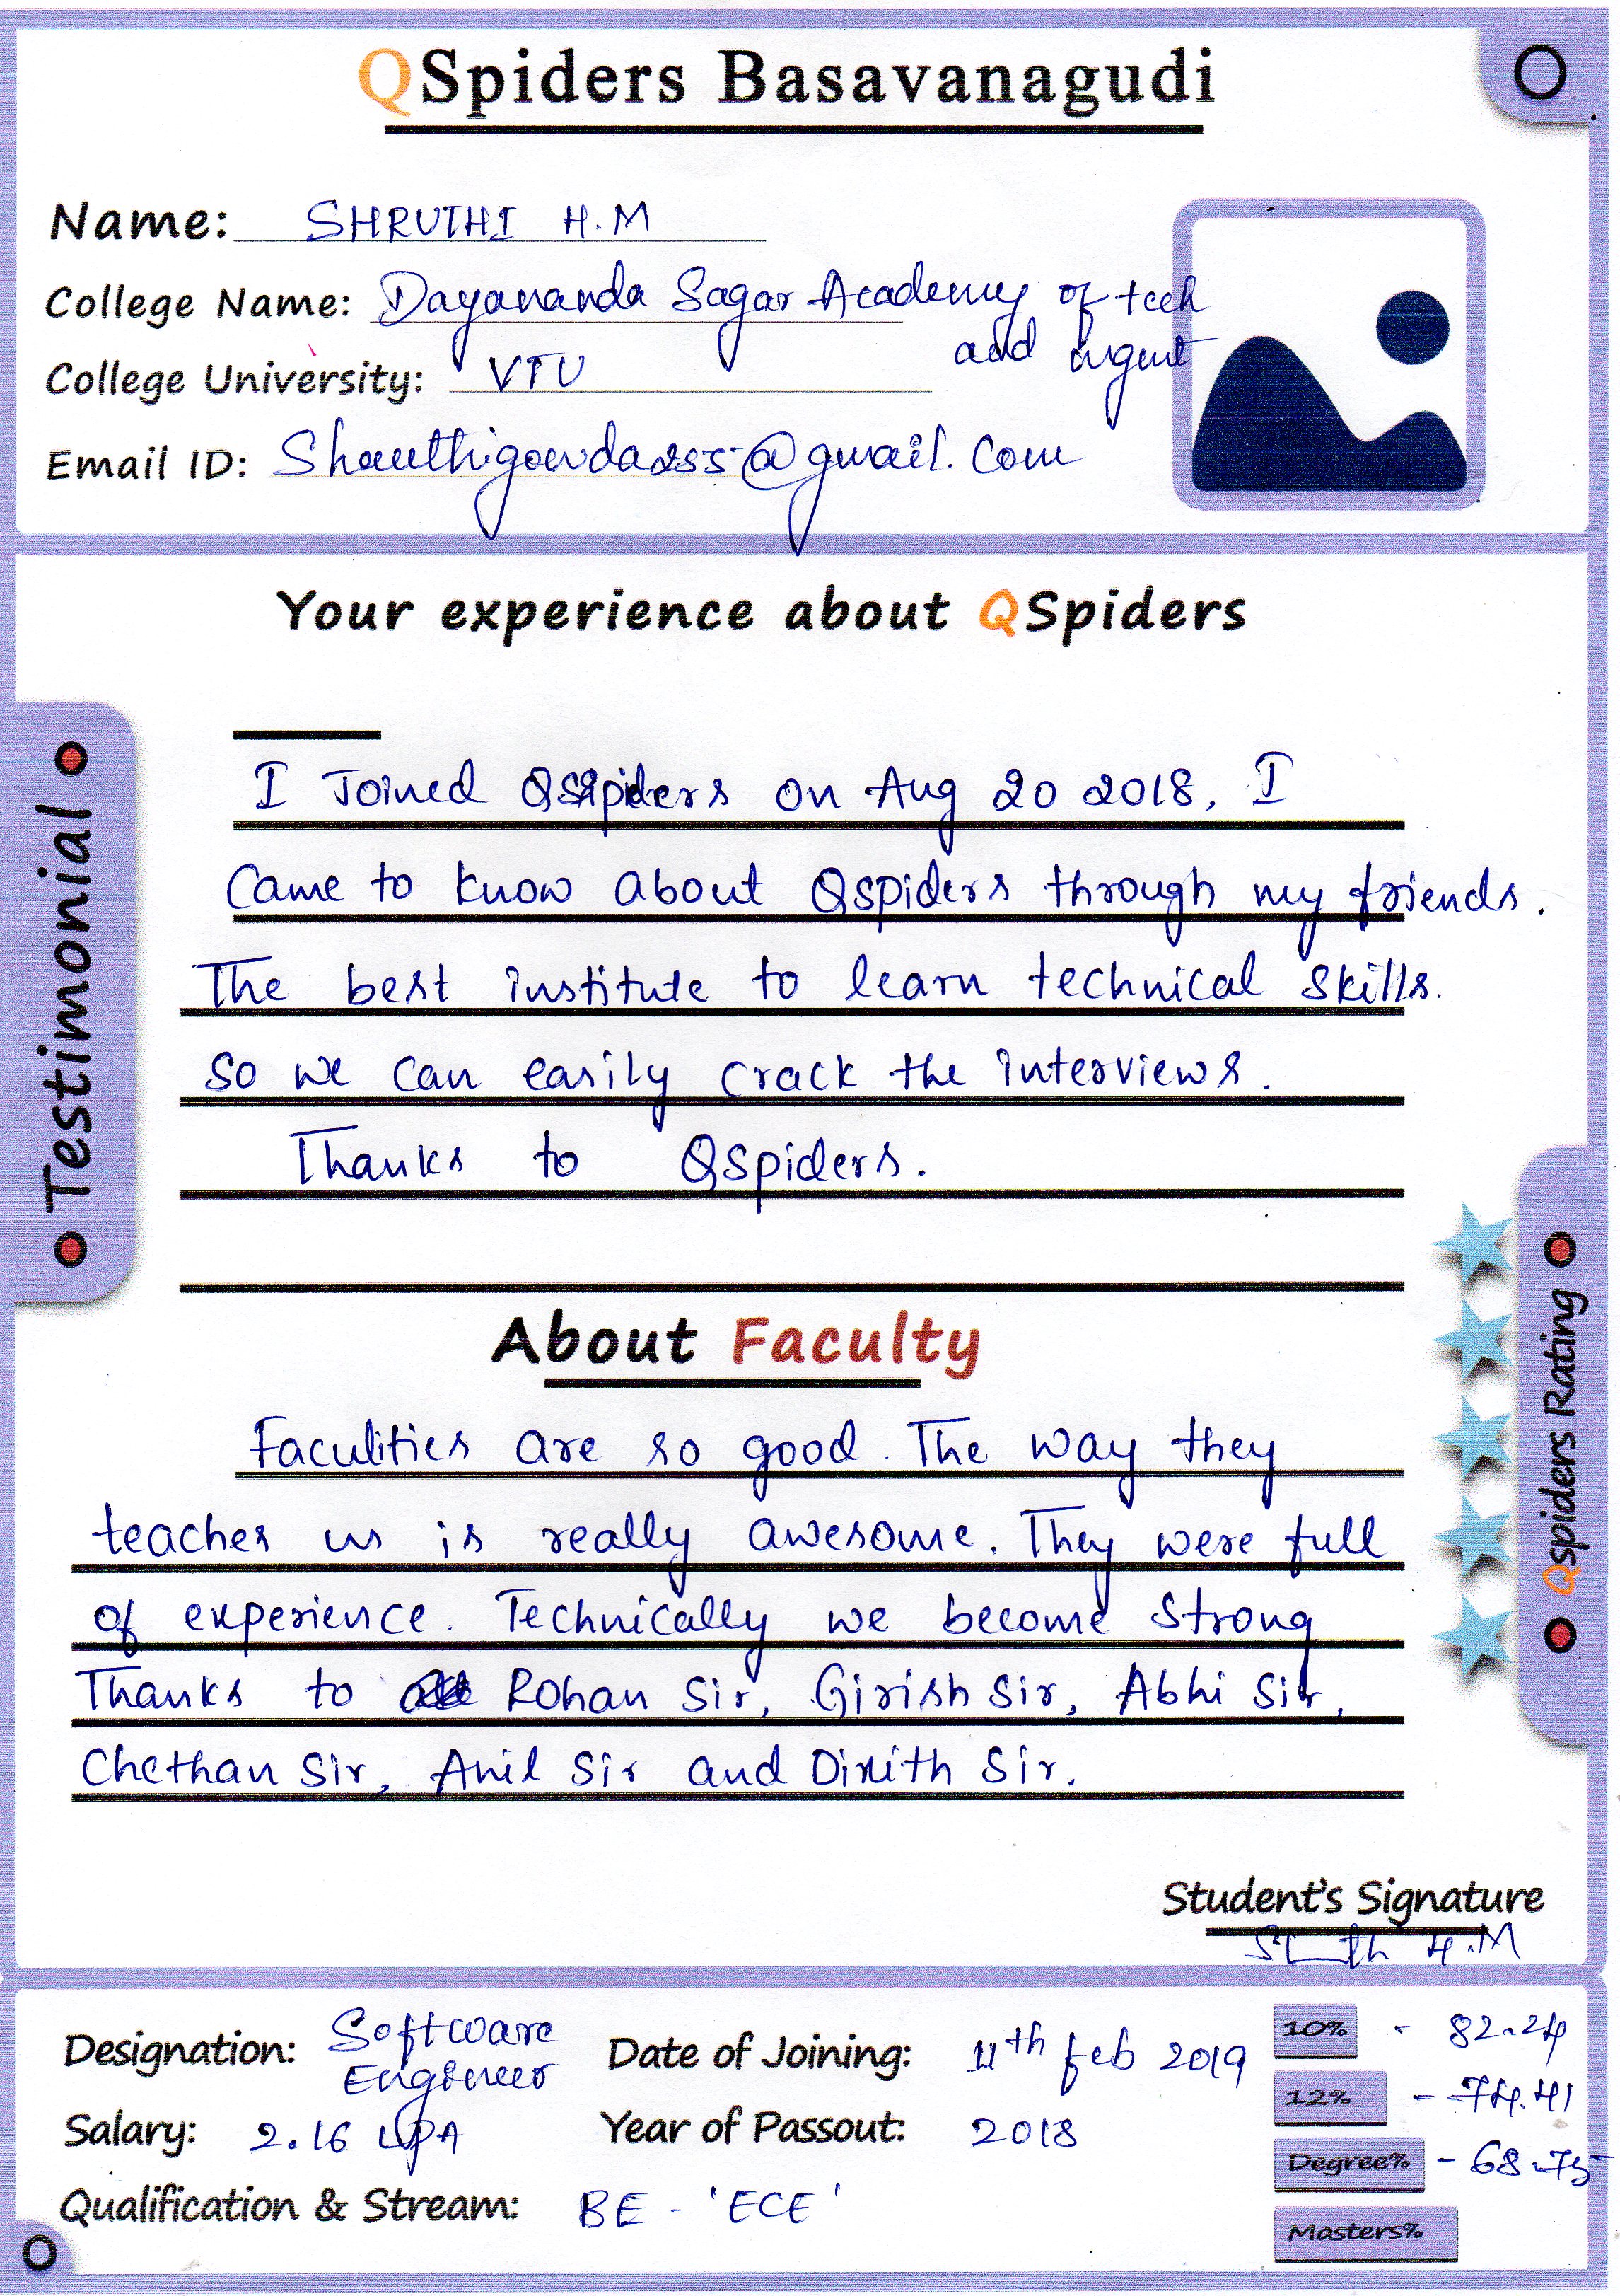 QSpiders Basavanagudi
Name: SHRUTHI H.M
College Name: Dayananda Sagar Academy of tech
and
College University: VTU
Email ID:
Your experience about QSpiders
Testimonial
I Joined QSpiders on Aug 20 2018, I
Came to know about Qspiders through my friends.
The best institute to learn technical skills.
so we can easily crack the interviews.
Thanks to Qspiders.
About Faculty
Qspiders Rating
Faculities are so good. The way they
teaches us is really awesome. They were full
of experience. Technically we become strong
Thanks to Rohan Sir, Girish Sir, Abhi Sir,
Chethan Sir, Anil Sir and Dixith Sir.
Student's Signature
H.M
Designation: Software
Engineer
Date of Joining: 11th feb 2019
Salary: 2.16 LPA
Year of Passout: 2018
Qualification & Stream: BE - 'ECE'
10% - 82.24
12% - 74.41
Degree% - 68.75
Masters%